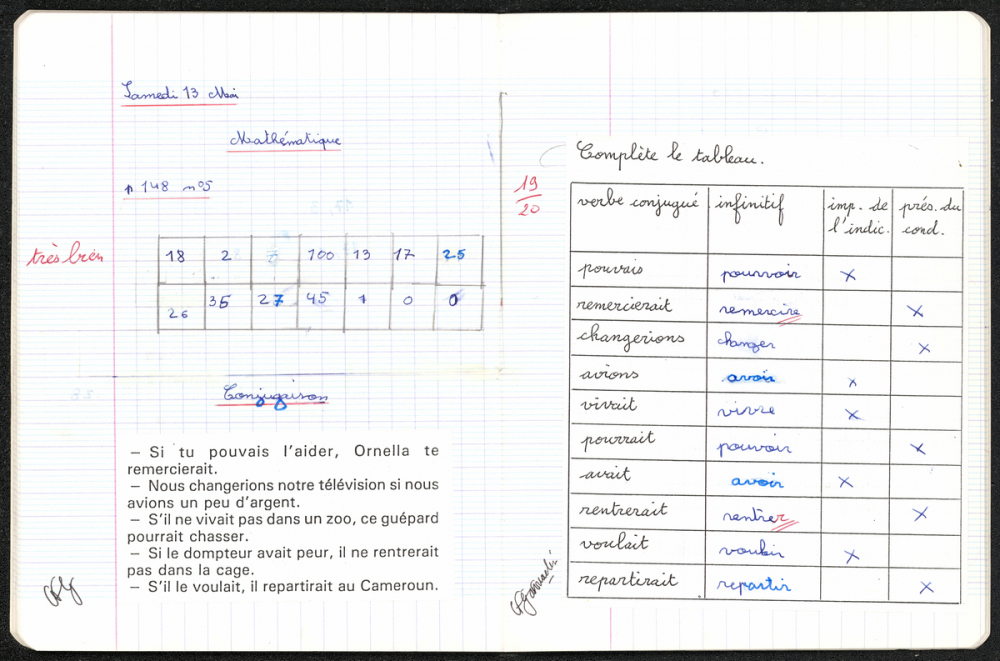 Samedi 13 Mai
Mathématique
p 148 n°5
très bien
18 2 100 13 17 25
26 36 27 45 1 0 0
Conjugaison
– Si tu pouvais l'aider, Ornella te
remercierait.
– Nous changerions notre télévision si nous
avions un peu d'argent.
– S'il ne vivait pas dans un zoo, ce guépard
pourrait chasser.
– Si le dompteur avait peur, il ne rentrerait
pas dans la cage.
– S'il le voulait, il repartirait au Cameroun.
19
20
Complète le tableau.
verbe conjugué infinitif imp. de l'indic. prés. du cond.
pouvais pourvoir x
remercierait remercire x
changerions changer x
avions avoir x
vivait vivre x
pourrait pouvoir x
avait avoir x
rentrerait rentrer x
voulait vouloir x
repartirait repartir x